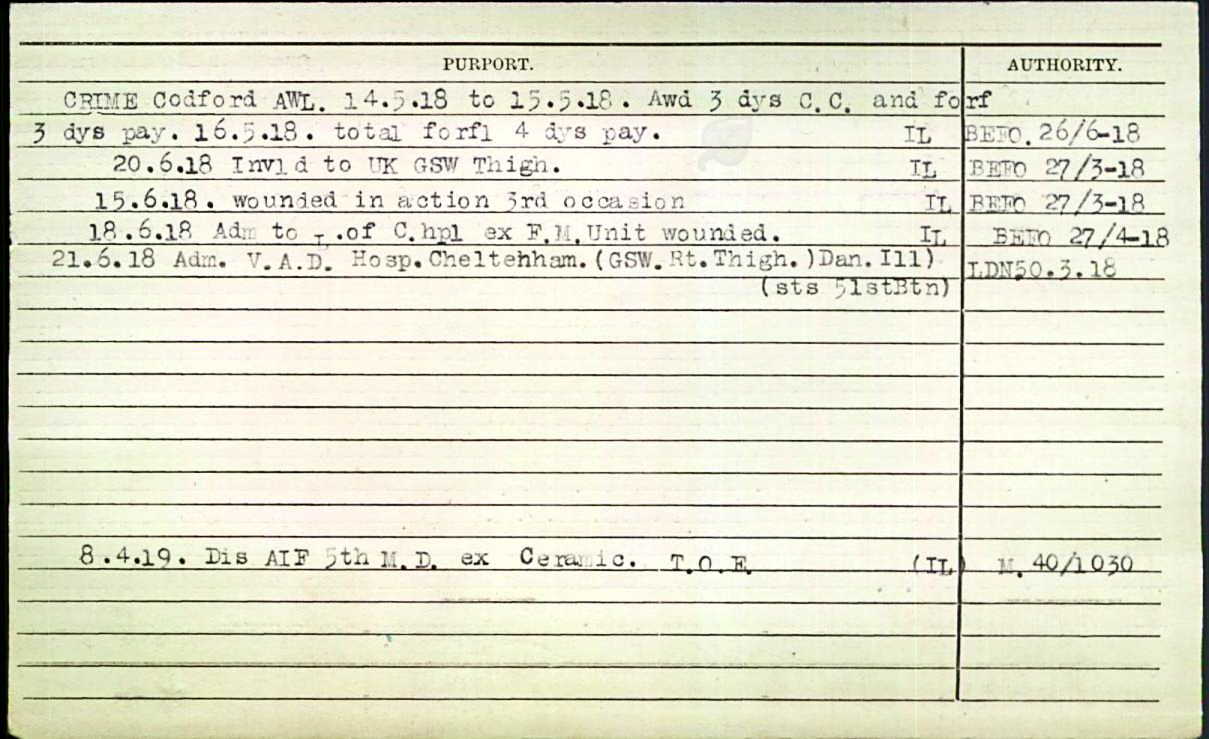 PURPORT. AUTHORITY.
CRIME Codford AWL. 14.5.18 to 15.5.18. Awd 3 dys C.C. and forf
3 dys pay. 16.5.18. total forfl 4 dys pay. IL BEFO. 26/6-18
20.6.18 Invld to UK GSW Thigh. IL BEFO 27/3-18
15.6.18. wounded in action 3rd occasion IL BEFO 27/3-18
18.6.18 Adm to L.of C.hpl ex F.M.Unit wounded. IL BEFO 27/4-18
21.6.18 Adm. V.A.D. Hosp.Cheltehham.(GSW.Rt.Thigh.)Dan.Ill) LDN50.3.18
(sts 51stBtn)
8.4.19. Dis AIF 5th M.D. ex Ceramic. T.O.E. (IL) M. 40/1030